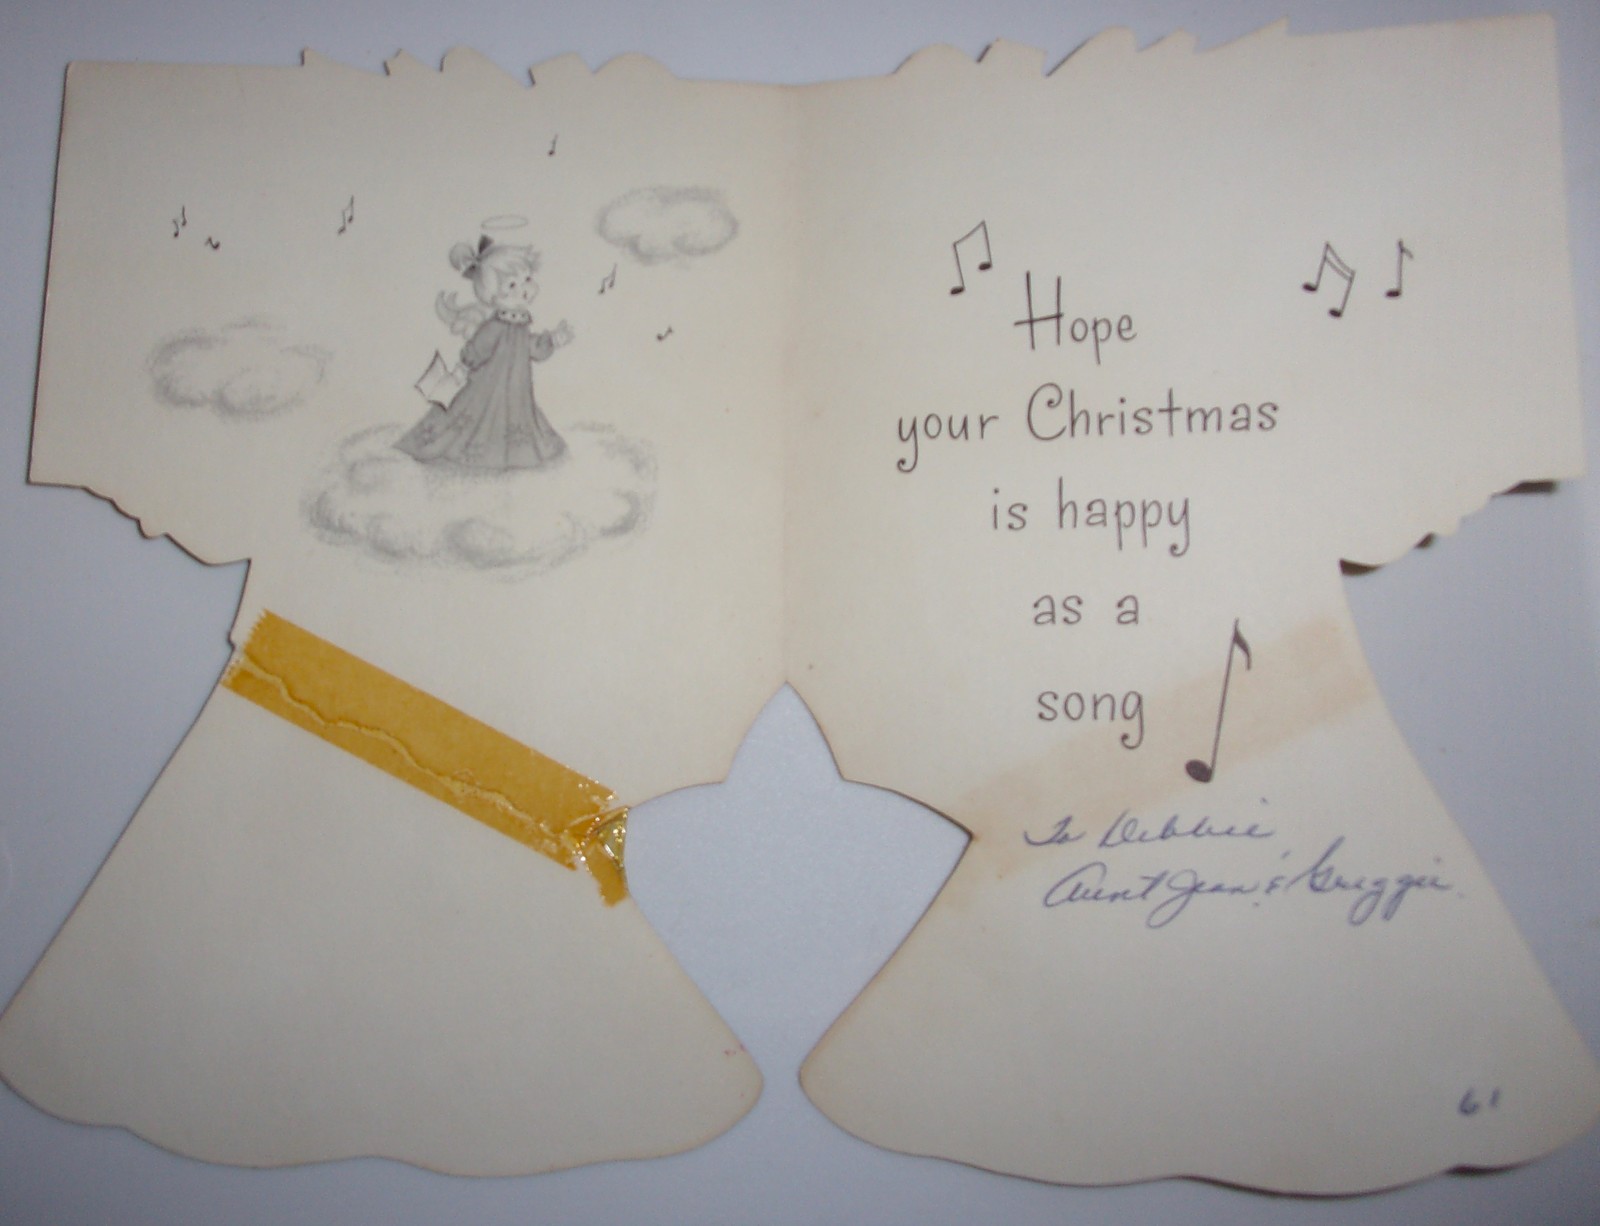 Hope
your Christmas
is happy
as a
song
To Debbie
Aunt Jean & Greggie
61